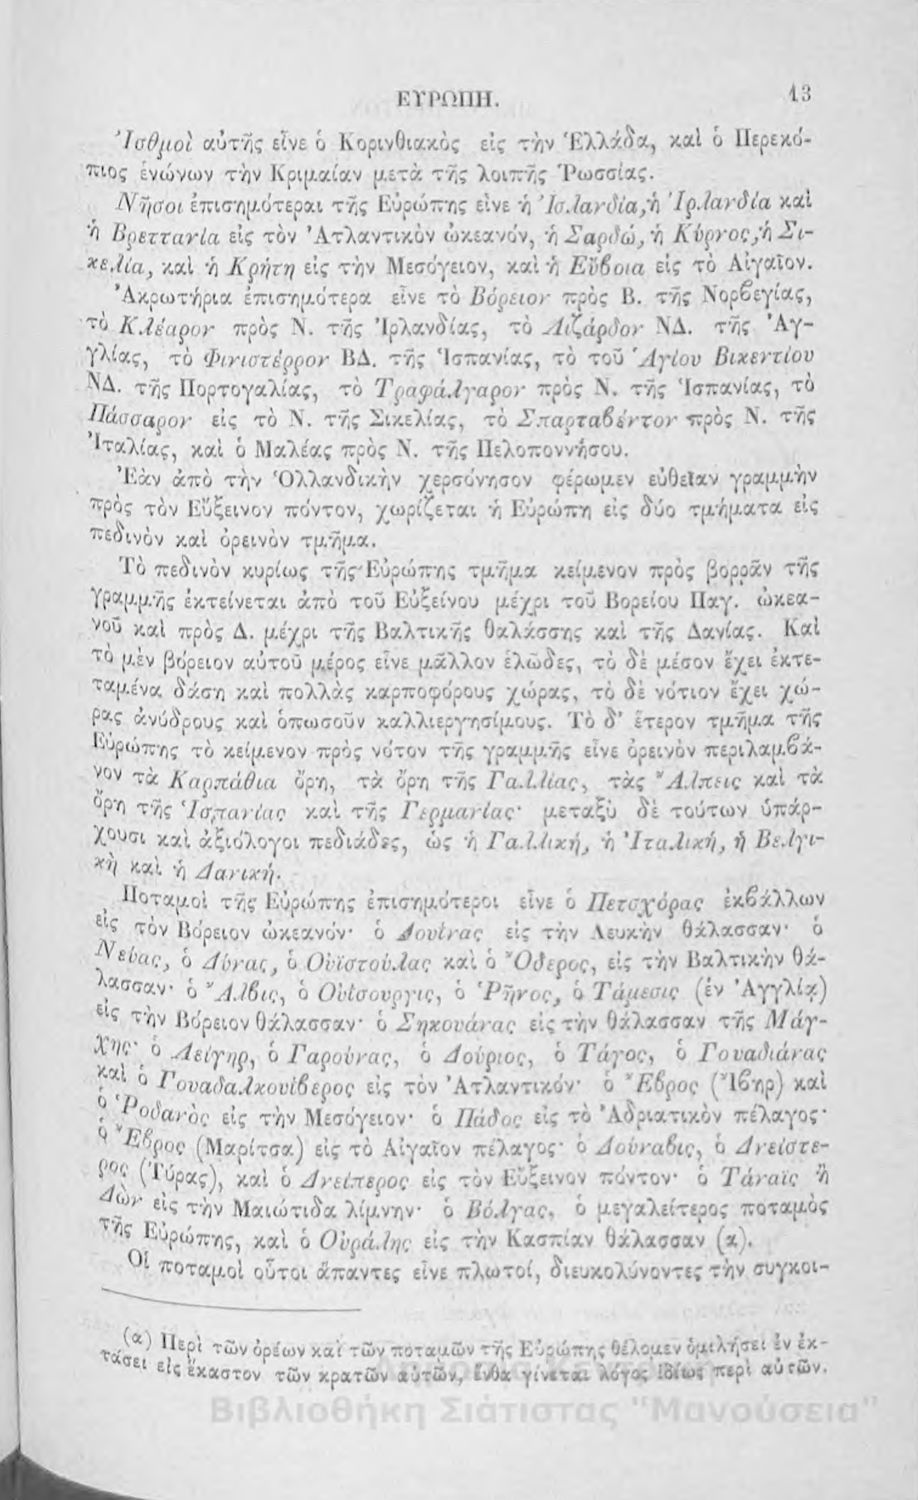 ΕΥΡΩΠΗ. 13
Ἰσθμοὶ αὐτῆς εἶνε ὁ Κορινθιακὸς εἰς τὴν Ἑλλάδα, καὶ ὁ Περεκό-
πιος ἑνώνων τὴν Κριμαίαν μετὰ τῆς λοιπῆς Ῥωσσίας.
Νῆσοι ἐπισημότεραι τῆς Εὐρώπης εἶνε ἡ Ἰσλανδία, ἡ Ἰρλανδία καὶ
ἡ Βρεττανία εἰς τὸν Ἀτλαντικὸν ὠκεανόν, ἡ Σαρδώ, ἡ Κύρνος, ἡ Σι-
κελία, καὶ ἡ Κρήτη εἰς τὴν Μεσόγειον, καὶ ἡ Εὔβοια εἰς τὸ Αἰγαῖον.
Ἀκρωτήρια ἐπισημότερα εἶνε τὸ Βόρειον πρὸς Β. τῆς Νορβεγίας,
τὸ Κλέαρον πρὸς Ν. τῆς Ἰρλανδίας, τὸ Λιζάρδον ΝΔ. τῆς Ἀγ-
γλίας, τὸ Φινιστέρρον ΒΔ. τῆς Ἱσπανίας, τὸ τοῦ Ἁγίου Βικεντίου
ΝΔ. τῆς Πορτογαλίας, τὸ Τραφάλγαρον πρὸς Ν. τῆς Ἱσπανίας, τὸ
Πάσσαρον εἰς τὸ Ν. τῆς Σικελίας, τὸ Σπαρταβέντον πρὸς Ν. τῆς
Ἰταλίας, καὶ ὁ Μαλέας πρὸς Ν. τῆς Πελοποννήσου.
Ἐὰν ἀπὸ τὴν Ὁλλανδικὴν χερσόνησον φέρωμεν εὐθεῖαν γραμμὴν
πρὸς τὸν Εὔξεινον πόντον, χωρίζεται ἡ Εὐρώπη εἰς δύο τμήματα εἰς
πεδινὸν καὶ ὀρεινὸν τμῆμα.
Τὸ πεδινὸν κυρίως τῆς Εὐρώπης τμῆμα κείμενον πρὸς βορρᾶν τῆς
γραμμῆς ἐκτείνεται ἀπὸ τοῦ Εὐξείνου μέχρι τοῦ Βορείου Παγ. ὠκεα-
νοῦ καὶ πρὸς Δ. μέχρι τῆς Βαλτικῆς θαλάσσης καὶ τῆς Δανίας. Καὶ
τὸ μὲν βόρειον αὐτοῦ μέρος εἶνε μᾶλλον ἑλῶδες, τὸ δὲ μέσον ἔχει ἐκτε-
ταμένα δάση καὶ πολλὰς καρποφόρους χώρας, τὸ δὲ νότιον ἔχει χώ-
ρας ἀνύδρους καὶ ὁπωσοῦν καλλιεργησίμους. Τὸ δ' ἕτερον τμῆμα τῆς
Εὐρώπης τὸ κείμενον πρὸς νότον τῆς γραμμῆς εἶνε ὀρεινὸν περιλαμβά-
νον τὰ Καρπάθια ὄρη, τὰ ὄρη τῆς Γαλλίας, τὰς Ἄλπεις καὶ τὰ
ὄρη τῆς Ἱσπανίας καὶ τῆς Γερμανίας· μεταξὺ δὲ τούτων ὑπάρ-
χουσι καὶ ἀξιόλογοι πεδιάδες, ὡς ἡ Γαλλική, ἡ Ἰταλική, ἡ Βελγι-
κὴ καὶ ἡ Δανική.
Ποταμοὶ τῆς Εὐρώπης ἐπισημότεροι εἶνε ὁ Πετσχόρας ἐκβάλλων
εἰς τὸν Βόρειον ὠκεανόν· ὁ Δουίνας εἰς τὴν Λευκὴν θάλασσαν· ὁ
Νεύας, ὁ Δύνας, ὁ Οὐϊστούλας καὶ ὁ Ὄδερος, εἰς τὴν Βαλτικὴν θά-
λασσαν· ὁ Ἄλβις, ὁ Οὐίσουργις, ὁ Ῥῆνος, ὁ Τάμεσις (ἐν Ἀγγλίᾳ)
εἰς τὴν Βόρειον θάλασσαν· ὁ Σηκουάνας εἰς τὴν θάλασσαν τῆς Μάγ-
χης· ὁ Λείγηρ, ὁ Γαρούνας, ὁ Δούριος, ὁ Τάγος, ὁ Γουαδιάνας
καὶ ὁ Γουαδαλκουίβερος εἰς τὸν Ἀτλαντικόν· ὁ Ἔβρος (Ἴβηρ) καὶ
ὁ Ῥοδανὸς εἰς τὴν Μεσόγειον· ὁ Πάδος εἰς τὸ Ἀδριατικὸν πέλαγος·
ὁ Ἕβρος (Μαρίτσα) εἰς τὸ Αἰγαῖον πέλαγος· ὁ Δούναβις, ὁ Δνείστε-
ρος (Τύρας), καὶ ὁ Δνείπερος εἰς τὸν Εὔξεινον πόντον· ὁ Τάναϊς ἢ
Δὼν εἰς τὴν Μαιώτιδα λίμνην· ὁ Βόλγας, ὁ μεγαλείτερος ποταμὸς
τῆς Εὐρώπης, καὶ ὁ Οὐράλης εἰς τὴν Κασπίαν θάλασσαν (α).
Οἱ ποταμοὶ οὗτοι ἅπαντες εἶνε πλωτοί, διευκολύνοντες τὴν συγκοι-
(α) Περὶ τῶν ὀρέων καὶ τῶν ποταμῶν τῆς Εὐρώπης θέλομεν ὁμιλήσει ἐν ἐκ-
τάσει εἰς ἕκαστον τῶν κρατῶν αὐτῶν, ἔνθα γίνεται λόγος ἰδίως περὶ αὐτῶν.
Βιβλιοθήκη Σιάτιστας "Μανούσεια"